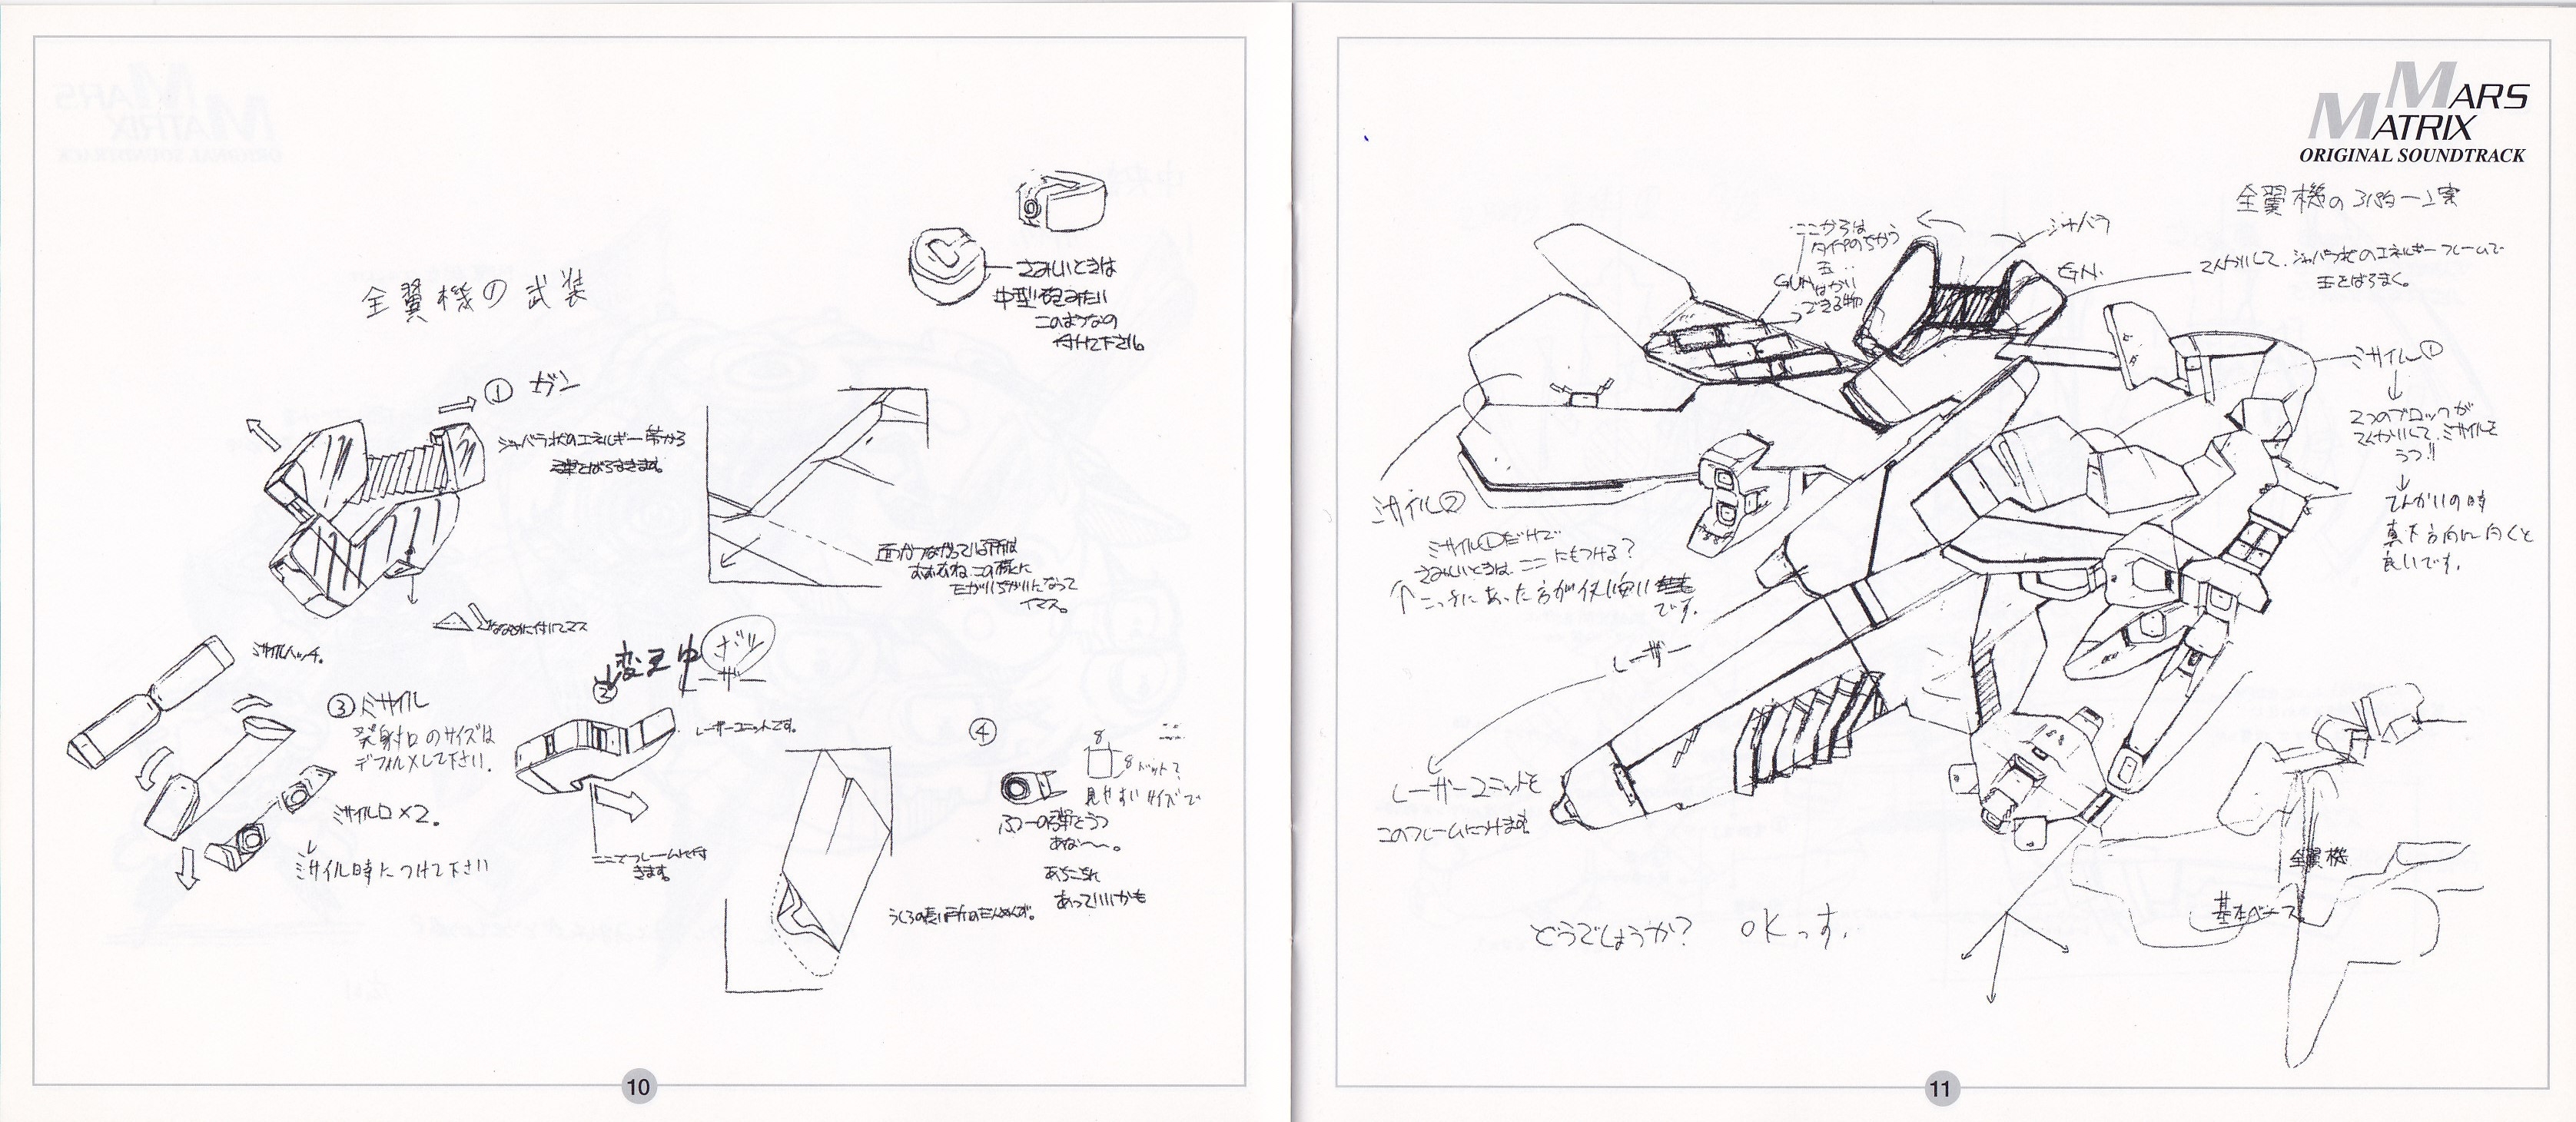 全翼機の武装
さみしいときは
中型砲みたい
このようなの
付けて下さい。
① ガン
ジャバラ状のエネルギー帯から
弾をばらまきます。
面がつながっている所は
おおむねこの様に
ちがいになって
イマス。
ななめに付いてマス
ミサイルハッチ。
③ ミサイル
発射口のサイズは
デフォルメして下さい。
ミサイル口×2。
↓
ミサイル時につけて下さい
変更中
ボツ
②
レーザーユニットです。
ここでフレームに付
きます。
うしろの長い所の
④
8
8ドット?
見やすいサイズで
ふつーの弾をうつ
あな〜。
あちこち
あっていいかも
10
MARS
MATRIX
ORIGINAL SOUNDTRACK
全翼機の
ジャバラ
ここからは
タイプのちがう
玉
ばかり
できる物
GUN
GN.
てんかいして、ジャバラ状のエネルギーフレームで
玉をばらまく。
ミサイル①
↓
2つのブロックが
てんかいして、ミサイルを
うつ!!
↓
てんかいの時
真下方向に向くと
良いです。
ミサイル②
ミサイル①だけで
さみしいときは、ここにもつける?
↑こっちにあった方が
です。
レーザー
レーザーユニットを
このフレームにつけます。
全翼機
基本ベース
どうでしょうか? OKっす.
11